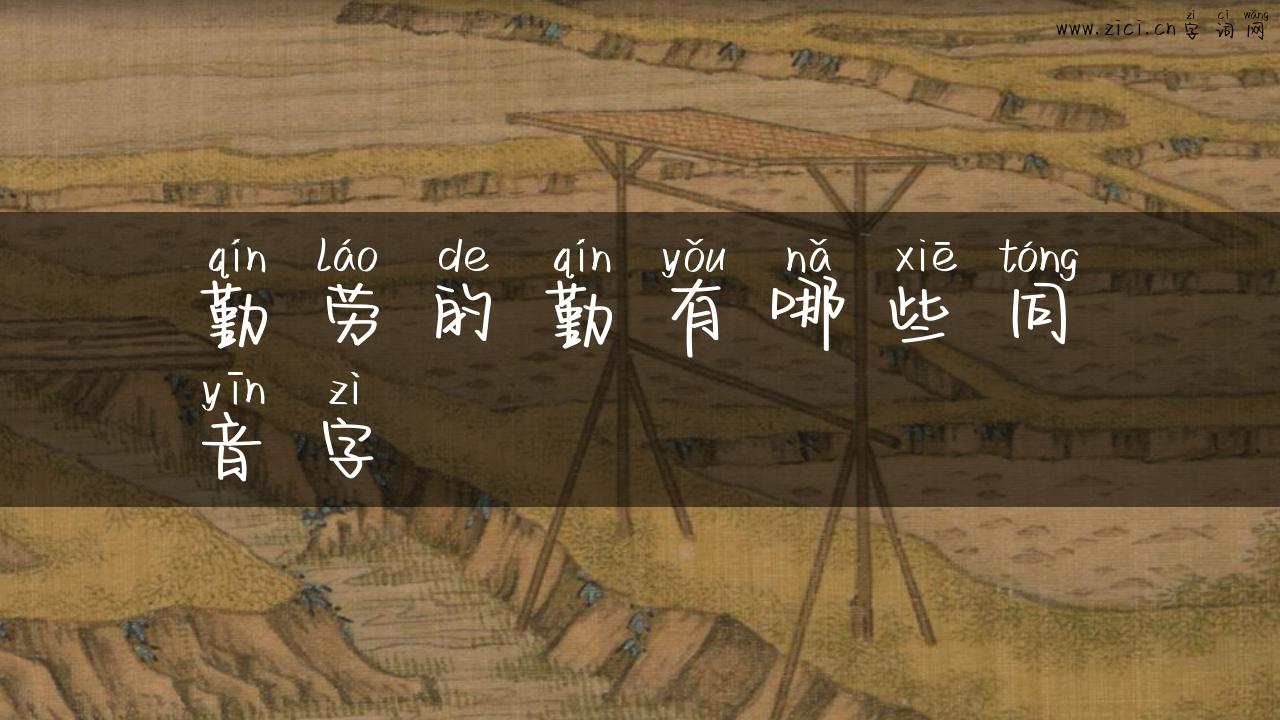 zì cí wǎng
www.zici.cn 字 词 网
qín láo de qín yǒu nǎ xiē tóng
勤 劳 的 勤 有 哪 些 同
yīn zì
音 字